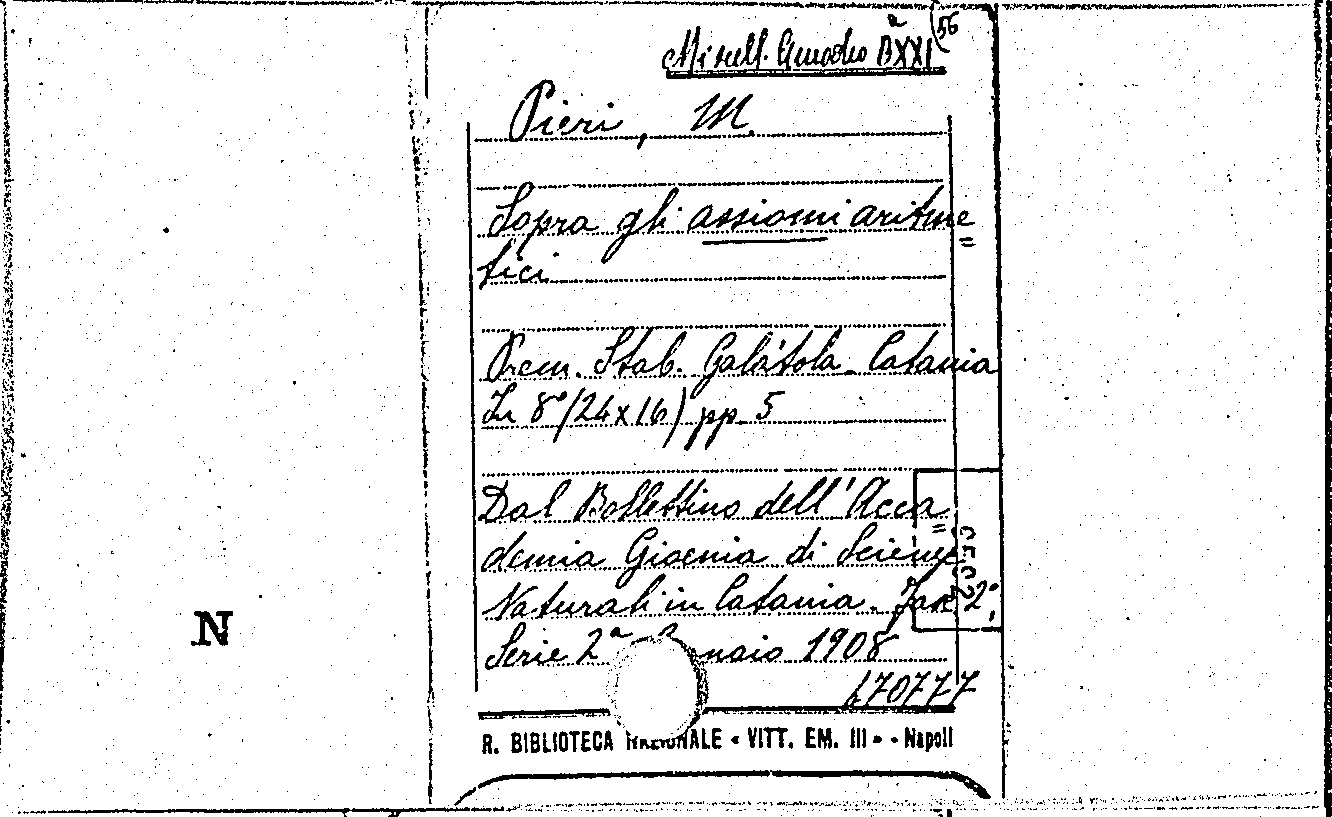 Misell. Amodeo BXXI ª (56
Pieri, M.
Sopra gli assiomi aritme=
tici
Prem. Stab. Galàtola - Catania
In 8º (24x16) pp. 5
Dal Bollettino dell'Acca=
demia Gioenia di Scienze
Naturali in Catania. Fasc 2º,
Serie 2ª naio 1908
470777
R. BIBLIOTECA NAZIONALE « VITT. EM. III » - Napoli
N